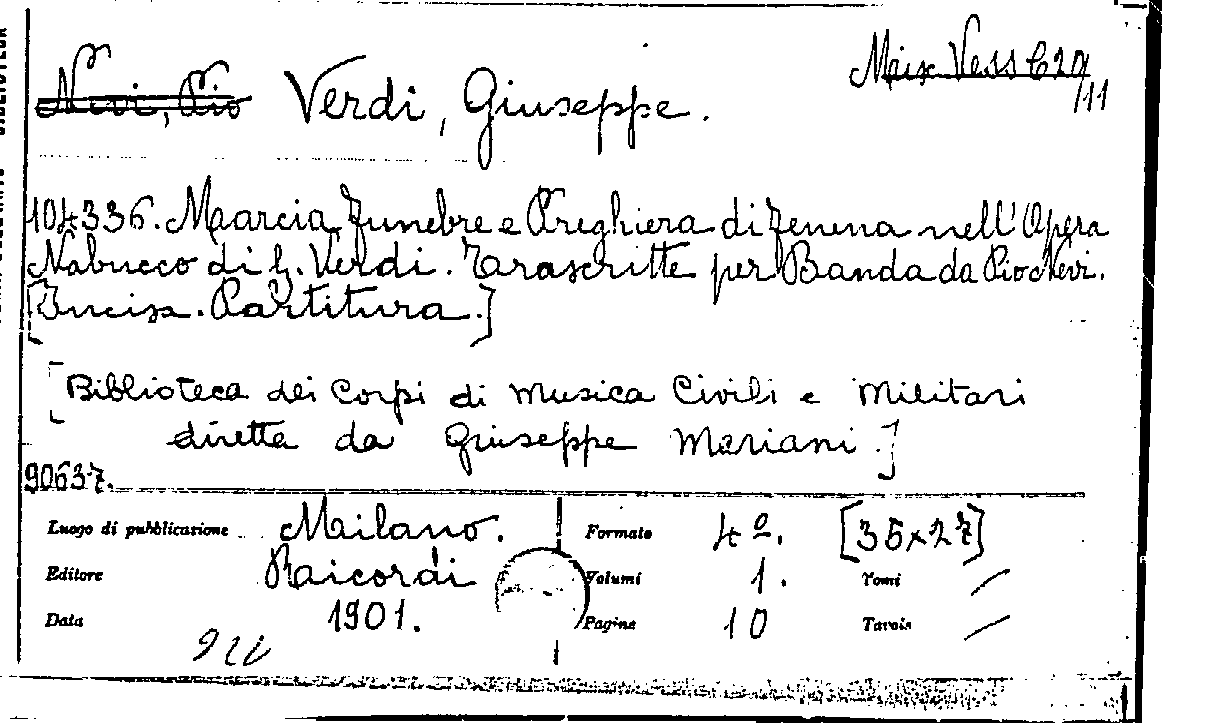 Nevi, Pio Verdi, Giuseppe.
/11
104336. Marcia funebre e Preghiera di Fenena nell'Opera
Nabucco di G. Verdi. Trascritte per Banda da Pio Nevi.
[Incisa. Partitura.]
[Biblioteca dei Corpi di Musica Civili e Militari
diretta da Giuseppe Mariani.]
90637.
Luogo di pubblicazione Milano. Formato 4º. [35x27]
Editore Ricordi Volumi 1. Tomi /
Data 1901. Pagine 10 Tavole /